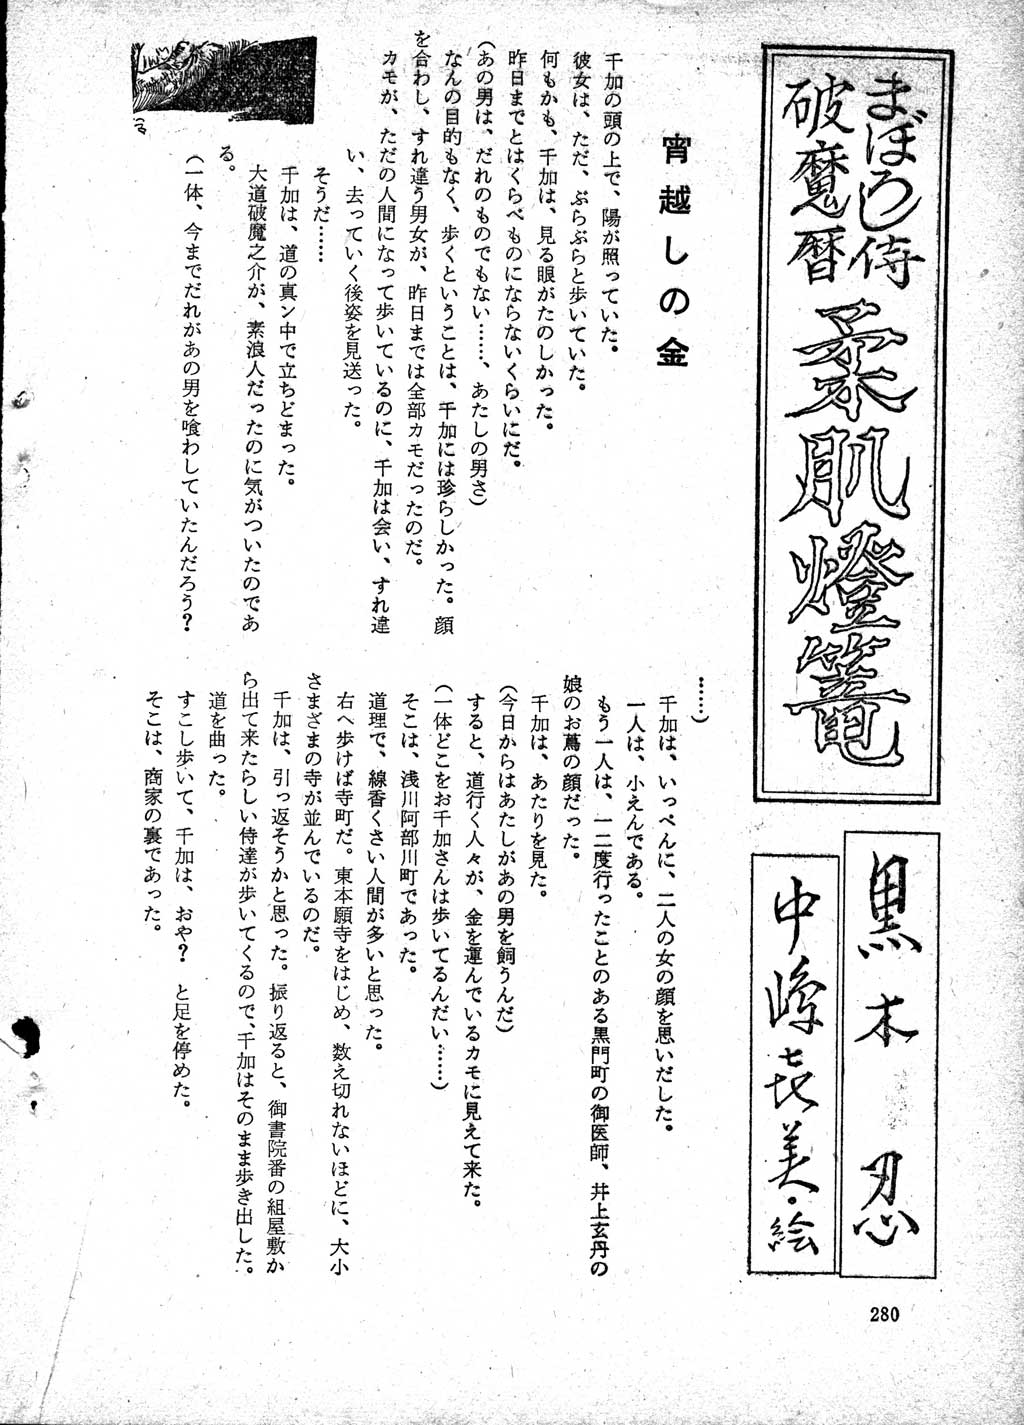 まぼろし侍
破魔暦
柔肌燈篭
黒木忍
中嶋喜美・絵
宵越しの金
千加の頭の上で、陽が照っていた。
彼女は、ただ、ぶらぶらと歩いていた。
何もかも、千加は、見る眼がたのしかった。
昨日までとはくらべものにならないくらいにだ。
（あの男は、だれのものでもない……、あたしの男さ）
なんの目的もなく、歩くということは、千加には珍らしかった。顔
を合わし、すれ違う男女が、昨日までは全部カモだったのだ。
カモが、ただの人間になって歩いているのに、千加は会い、すれ違
い、去っていく後姿を見送った。
そうだ……
千加は、道の真ン中で立ちどまった。
大道破魔之介が、素浪人だったのに気がついたのであ
る。
（一体、今までだれがあの男を喰わしていたんだろう？
……）
千加は、いっぺんに、二人の女の顔を思いだした。
一人は、小えんである。
もう一人は、一二度行ったことのある黒門町の御医師、井上玄丹の
娘のお蔦の顔だった。
千加は、あたりを見た。
（今日からはあたしがあの男を飼うんだ）
すると、道行く人々が、金を運んでいるカモに見えて来た。
（一体どこをお千加さんは歩いてるんだい……）
そこは、浅川阿部川町であった。
道理で、線香くさい人間が多いと思った。
右へ歩けば寺町だ。東本願寺をはじめ、数え切れないほどに、大小
さまざまの寺が並んでいるのだ。
千加は、引っ返そうかと思った。振り返ると、御書院番の組屋敷か
ら出て来たらしい侍達が歩いてくるので、千加はそのまま歩き出した。
道を曲った。
すこし歩いて、千加は、おや？　と足を停めた。
そこは、商家の裏であった。
280